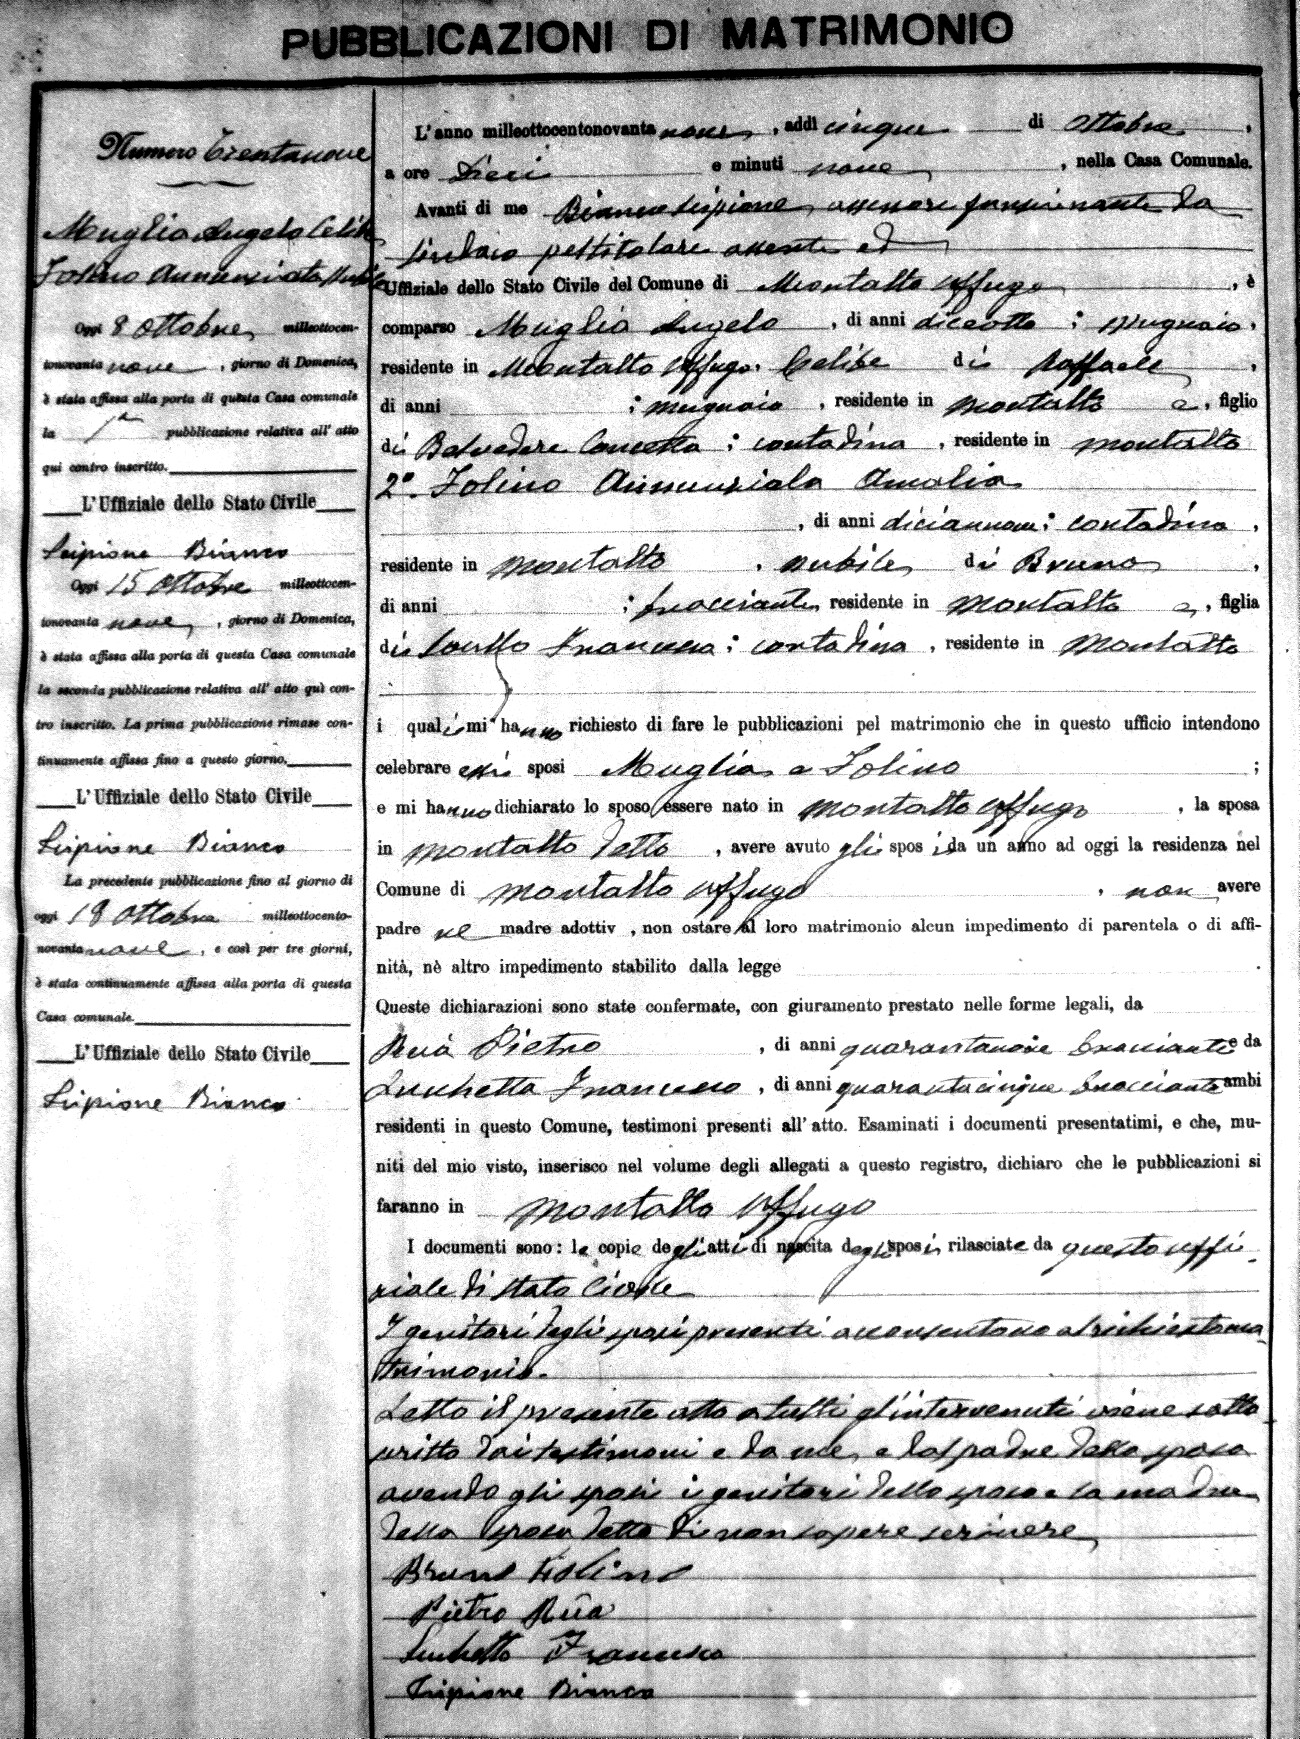 PUBBLICAZIONI DI MATRIMONIO
Numero Trentanove
Muglia Angelo Celibe
Folino Annunziata Nubile
Oggi 8 Ottobre milleottocen-
tonovanta nove, giorno di Domenica,
è stata affissa alla porta di questa Casa comunale
la 1ª pubblicazione relativa all' atto
qui contro inscritto.
L'Uffiziale dello Stato Civile
Scipione Bianco
Oggi 15 Ottobre milleottocen-
tonovanta nove, giorno di Domenica,
è stata affissa alla porta di questa Casa comunale
la seconda pubblicazione relativa all' atto quì con-
tro inscritto. La prima pubblicazione rimase con-
tinuamente affissa fino a questo giorno.
L'Uffiziale dello Stato Civile
Scipione Bianco
La precedente pubblicazione fino al giorno di
oggi 18 Ottobre milleottocento-
novanta nove, e così per tre giorni,
è stata continuamente affissa alla porta di questa
Casa comunale.
L'Uffiziale dello Stato Civile
Scipione Bianco
L'anno milleottocentonovanta nove, addì cinque di Ottobre,
a ore dieci e minuti nove, nella Casa Comunale.
Avanti di me Bianco Scipione assessore funzionante da
Sindaco pel titolare assente ed
Uffiziale dello Stato Civile del Comune di Montalto Uffugo, è
comparso Muglia Angelo, di anni diciotto; mugnaio,
residente in Montalto Uffugo, Celibe di Raffaele,
di anni ; mugnaio, residente in Montalto e, figlio
di Belvedere Concetta; contadina, residente in Montalto
2°. Folino Annunziata Amalia
, di anni diciannove; contadina,
residente in Montalto, nubile di Bruno,
di anni ; bracciante, residente in Montalto e, figlia
di Francesca; contadina, residente in Montalto
i quali mi hanno richiesto di fare le pubblicazioni pel matrimonio che in questo ufficio intendono
celebrare essi sposi Muglia e Folino;
e mi hanno dichiarato lo sposo essere nato in Montalto Uffugo, la sposa
in Montalto detto, avere avuto gli sposi da un anno ad oggi la residenza nel
Comune di Montalto Uffugo, non avere
padre nè madre adottiv, non ostare al loro matrimonio alcun impedimento di parentela o di affi-
nità, nè altro impedimento stabilito dalla legge.
Queste dichiarazioni sono state confermate, con giuramento prestato nelle forme legali, da
Ruà Pietro, di anni quarantanove bracciante e da
Lucchetta Francesco, di anni quarantacinque bracciante ambi
residenti in questo Comune, testimoni presenti all' atto. Esaminati i documenti presentatimi, e che, mu-
niti del mio visto, inserisco nel volume degli allegati a questo registro, dichiaro che le pubblicazioni si
faranno in Montalto Uffugo
I documenti sono: le copie degli atti di nascita degli sposi, rilasciate da questo uffi-
ziale di Stato Civile
I genitori degli sposi presenti acconsentono al richiesto ma-
trimonio.
Letto il presente atto a tutti gl'intervenuti viene sotto-
scritto dai testimoni e da me, e dal padre della sposa
avendo gli sposi i genitori dello sposo e la madre
della sposa detto di non sapere scrivere
Bruno Folino
Pietro Rua
Lucchetta Francesco
Scipione Bianco